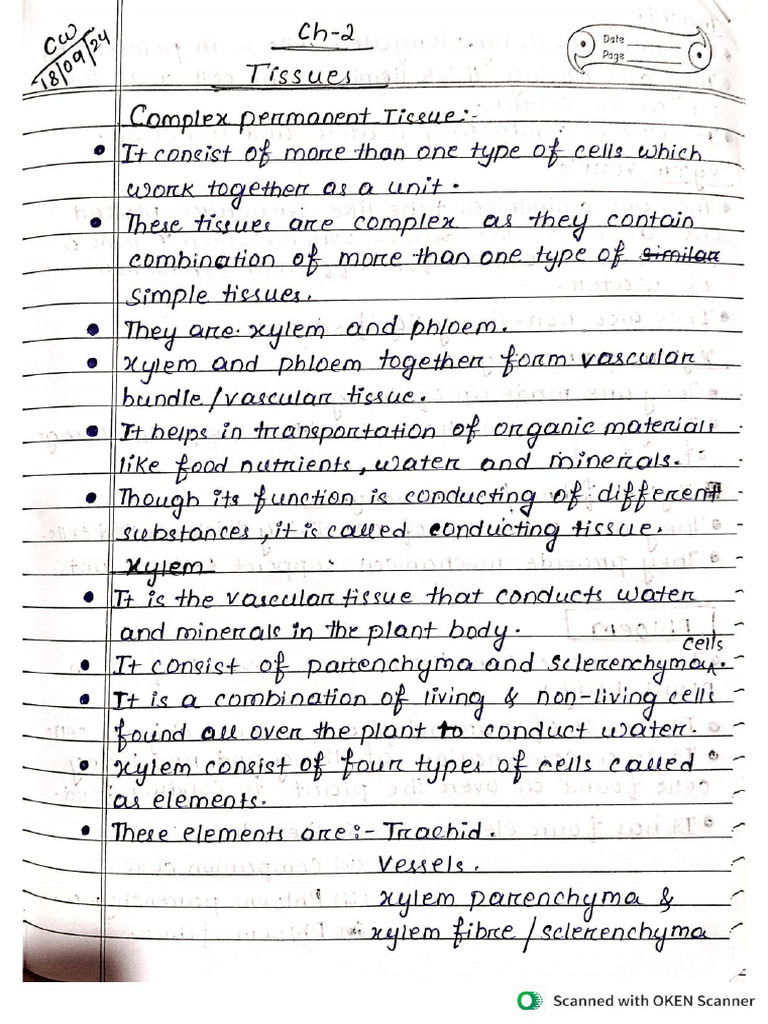 CW
18/09/24
Ch-2
Date
Page
Tissues
Complex permanent Tissue:-
• It consist of more than one type of cells which
work together as a unit.
• These tissues are complex as they contain
combination of more than one type of similar
simple tissues.
• They are xylem and phloem.
• Xylem and phloem together form vascular
bundle/vascular tissue.
• It helps in transportation of organic materials
like food nutrients, water and minerals.
• Though its function is conducting of different
substances, it is called conducting tissue.
Xylem:
• It is the vascular tissue that conducts water
and minerals in the plant body.
• It consist of parenchyma and sclerenchyma cells.
• It is a combination of living & non-living cells
found all over the plant to conduct water.
• Xylem consist of four types of cells called
as elements.
• These elements are:- Trachid.
Vessels.
xylem parenchyma &
xylem fibre/sclerenchyma
Scanned with OKEN Scanner